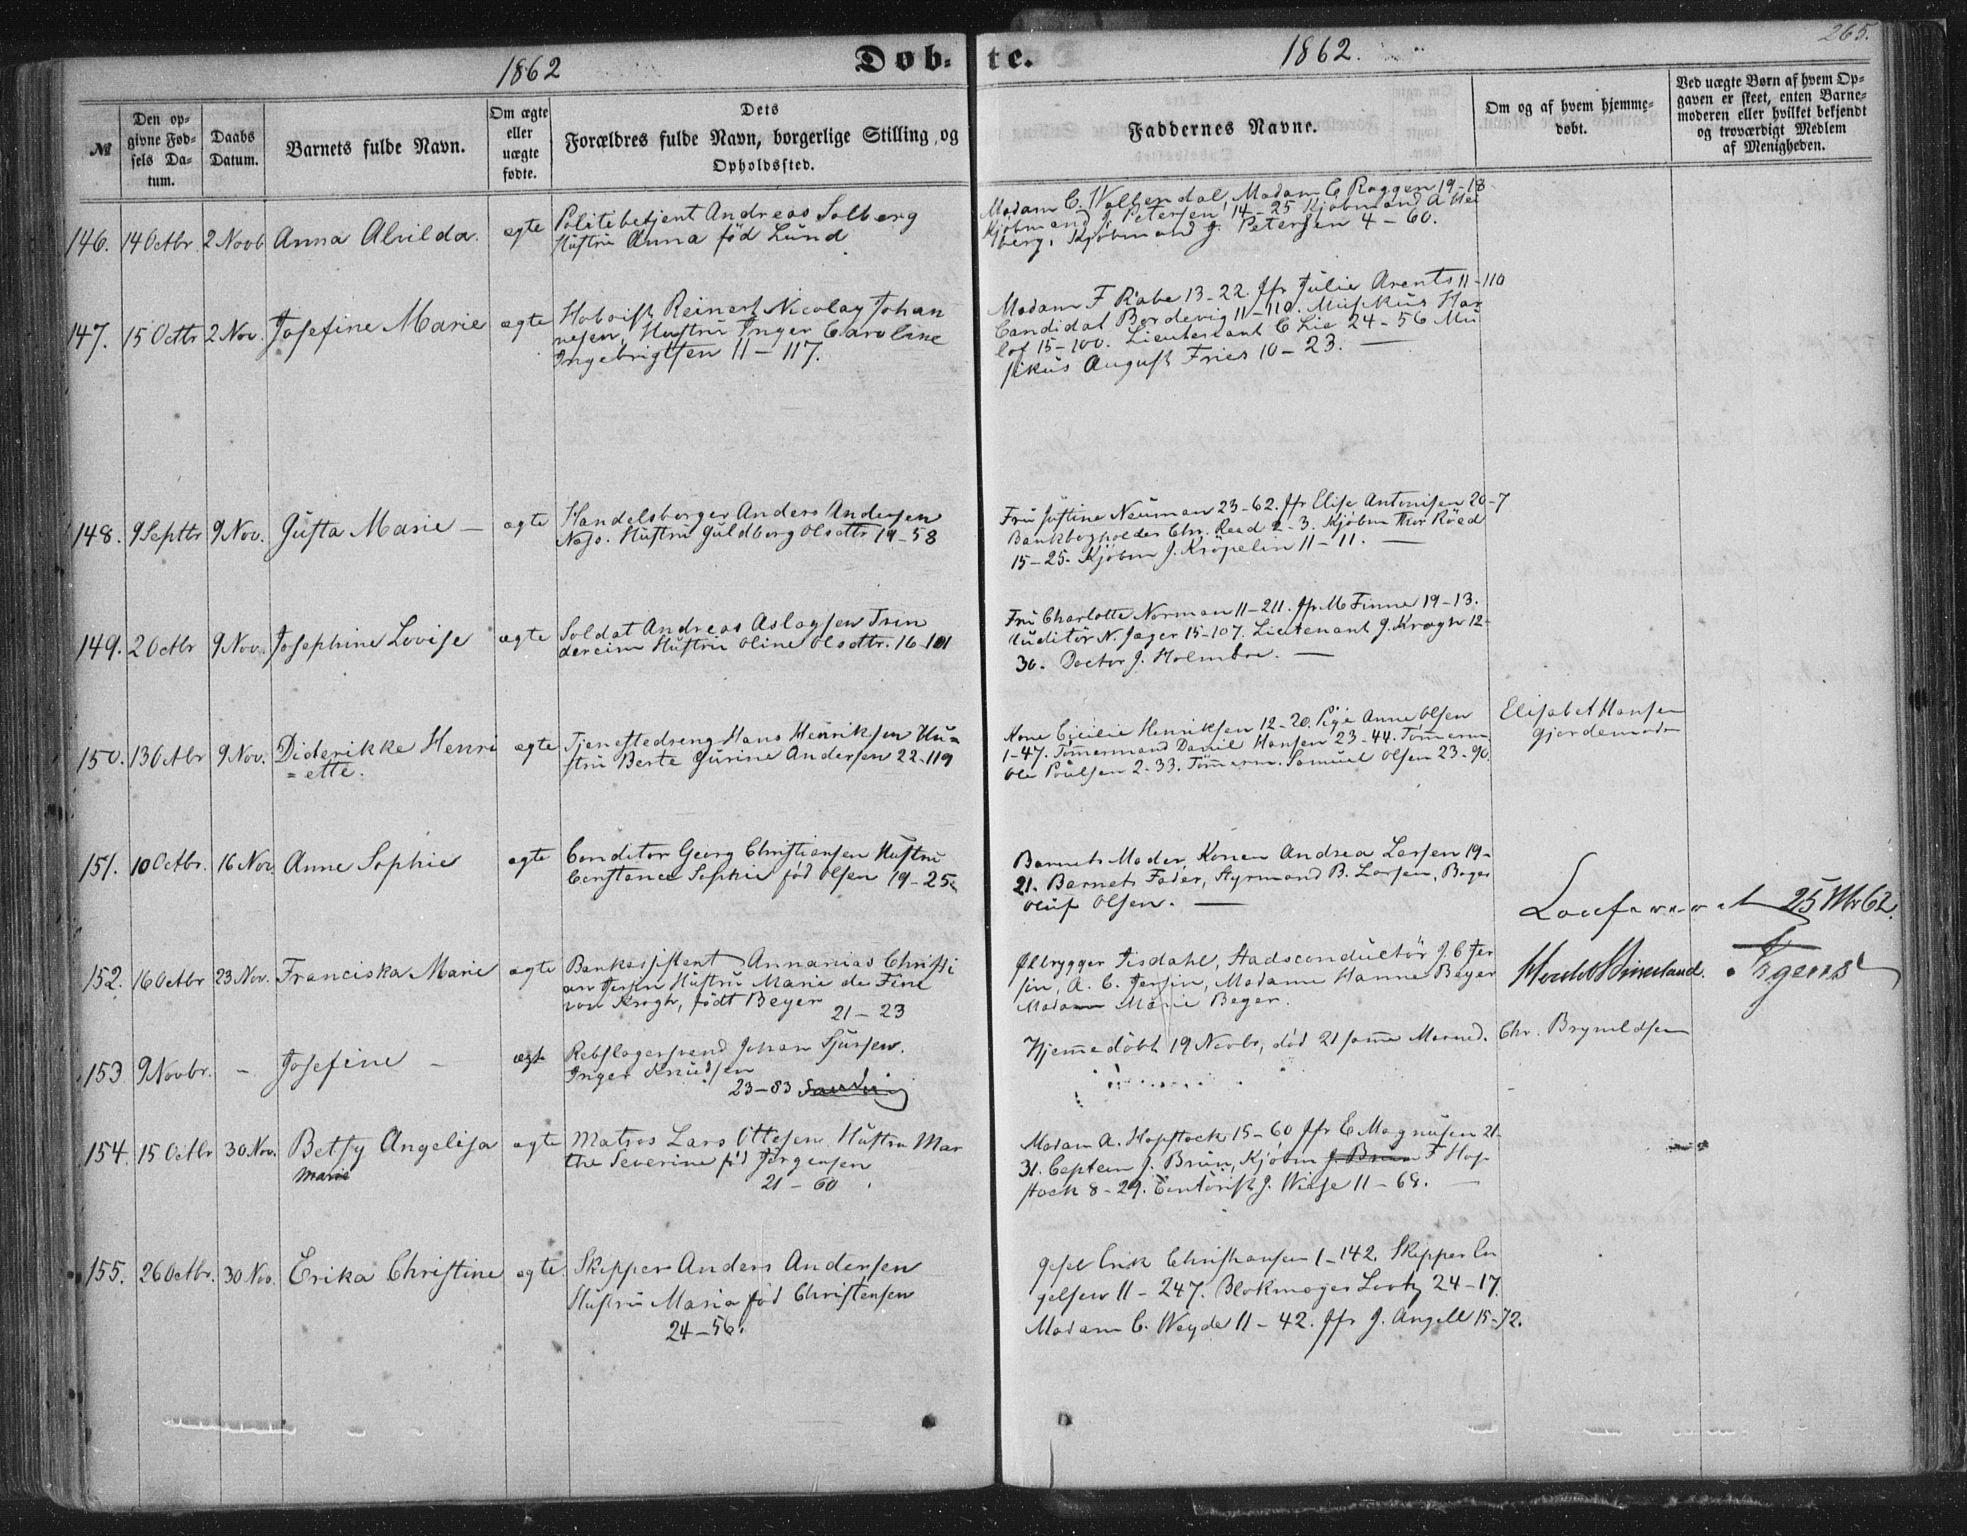 265.
1862
Døb-
te.
1862.
№
Den op-
givne Fød-
sels Da-
tum.
Daabs
Datum.
Barnets fulde Navn.
Om ægte
eller
uægte
fødte.
Dets
Forældres fulde Navn, borgerlige Stilling og
Opholdssted.
Faddernes Navne.
Om og af hvem hjemme-
døbt.
Ved uægte Børn af hvem Op-
gaven er skeet, enten Barne-
moderen eller hvilket bekjendt
og troværdigt Medlem
af Menigheden.
146. 14 Octbr. 2 Novb Anna Alvilda. ægte
Politibetjent Andreas Solberg
Hustru Anna fød Lund
Madam C. Wallendal, Madam C Roggen 19-18
Kjøbmand J. Petersen 14-25 Kjøbmand A Hei
berg, Kjøbmand J. Petersen 4-60.
147. 15 Octbr 2 Nov. Josefine Marie ægte
Hoboist Reinert Nicolay Johan
nesen, Hustru Inger Caroline
Ingebrigtsen 11-117.
Madam F Rabe 13-22. Jfr Julie Arents 11-110
Candidat Bordevig 11-110. Musikus Har
lof 15-100. Lieutenant C Lie 24-56 Mu
sikus August Fries 10-23. —
148. 9 Septbr 9 Nov. Justa Marie — ægte
Handelsborger Anders Andersen
Nesø. Hustru Guldborg Olsdttr 19-58
Fru Justine Neuman 23-62. Jfr Elise Antonisen 20-7
Bankbogholder Chr. Reed 2-3. Kjøbm Thor Röed
15-25. Kjøbm J. Kröpelin 11-11. —
149. 2 Octbr 9 Nov. Josephine Lovise ægte
Soldat Andreas Aslagsen Trin
dereim Hustru Oline Olsdttr. 16-101
Fru Charlotte Norman 11-211. Jfr M Finne 19-13.
Auditör N. Jager 15-107. Lieutenant J. Krogh 12-
30. Doctor J. Holmboe. —
150. 13 Octbr 9 Nov. Diderikke Henri ægte
=ette.
Tjenestedreng Hans Henriksen Hu-
stru Berte Gurine Andersen 22-119
Kone Cicilie Henriksen 12-20. Pige Anne Olsen
1-47. Tømmermand Daniel Hansen 23-44. Tømmerm
Ole Poulsen 2-33. Tømmerm. Samuel Olsen 23-90.
Elisabet Hansen
Gjordemoder
151. 10 Octbr. 16 Nov. Anne Sophie ægte
Conditor Georg Christiansen Hustru
Constance Sophie fød Olsen 19-25
Barnets Moder, Konen Andrea Larsen 19-
21. Barnets Fader, Styrmand B. Larsen, Bager
Oluf Olsen. —
25
62.
152. 16 Octbr 23 Nov. Franciska Marie ægte
Bankassistent Annanias Christi
an Jersin Hustru Marie de Fine
von Krogh, født Beyer
21-23
Ølbrygger Tisdahl, Stadsconductør J. C Jer
sin, A. C. Jersin, Madame Hanne Beyer
Madam Marie Beyer.
153 9 Novbr. - Josefine - ægte
Rebslagersvend Johan Sjursen.
Inger Knudsen
23-83
Hjemmedøbt 19 Novbr, død 21 samme Maaned.
Chr. Brynildsen
154. 15 Octbr 30 Nov. Betsy Angelisa ægte
Marie
Matros Lars Ottesen. Hustru Mar
the Severine fød Jørgensen
21-60
Madam A. Hopstock 15-60 Jfr E Magnusen 21-
31. Captein J. Brun, Kjøbm J. Brun F Hop
stock 8-29. Contorist J. Wiese 11-68. —
155. 26 Octbr. 30 Nov. Erika Christine ægte
Skipper Anders Andersen
Hustru Maria fød Christensen
24-56.
Gesel Erik Christiansen 1-142. Skipper En
gelsen 11-247. Blokmager Lootz 24-17.
Madam C. Weyde 11-42. Jfr J. Angell 15-72.